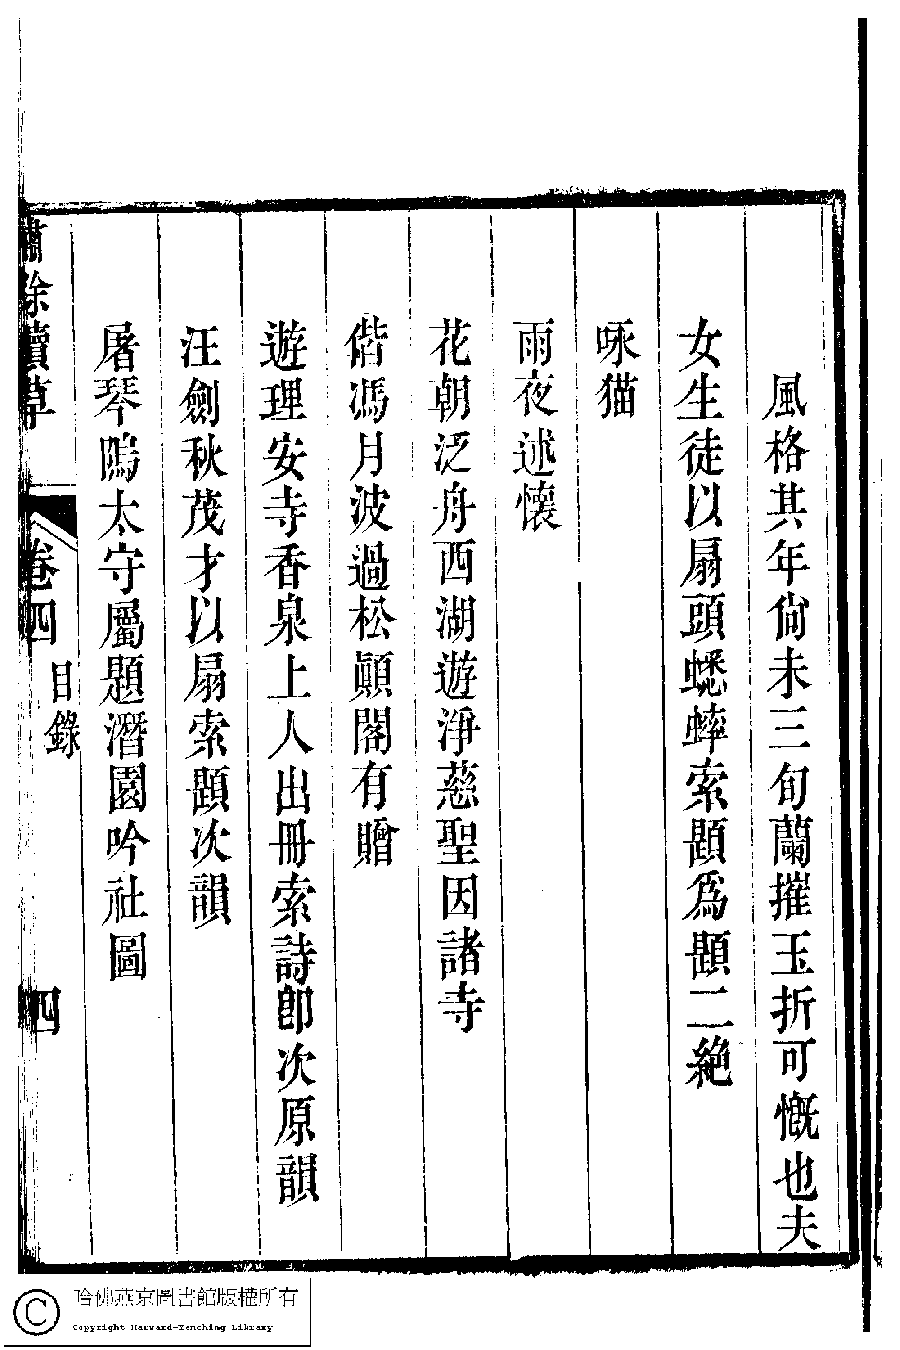 風格其年尙未三旬蘭摧玉折可慨也夫
女生徒以扇頭蟋蟀索題爲題二絕
咏猫
雨夜述懷
花朝泛舟西湖遊淨慈聖因諸寺
偕馮月波過松顚閣有贈
遊理安寺香泉上人出冊索詩卽次原韻
汪劍秋茂才以扇索題次韻
屠琴鴨太守屬題潛園吟社圖
餘續草
卷四
目錄
四
哈佛燕京圖書館版權所有
Copyright Harvard-Yenching Library